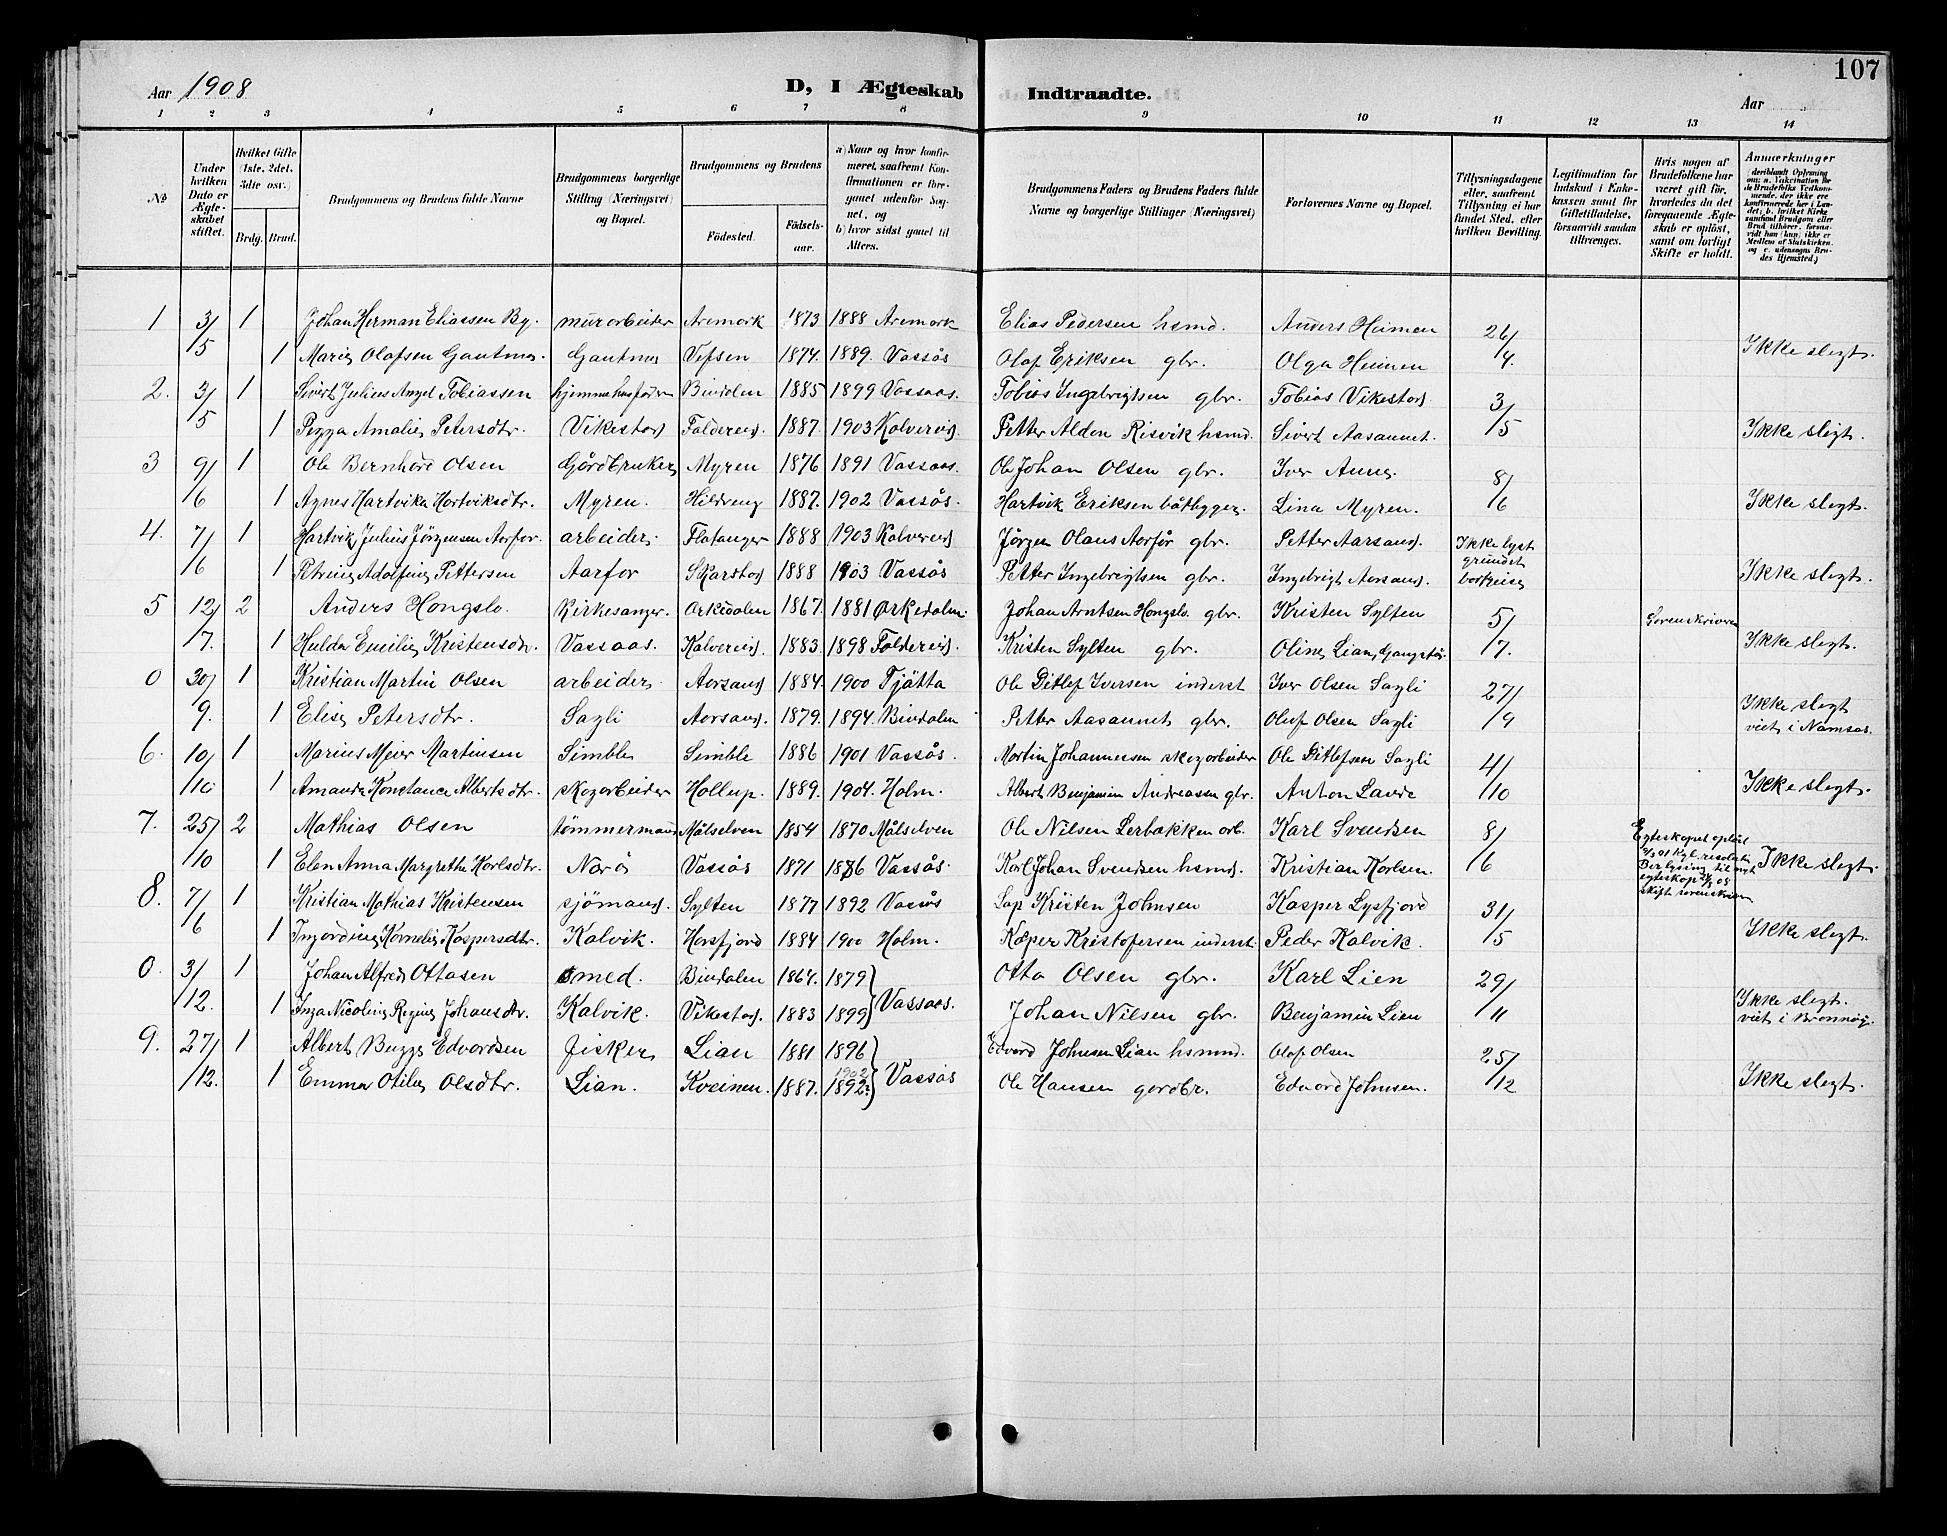 107
Aar 1908
D, I Ægteskab Indtraadte.
Aar
1 2 3 4 5 6 7 8 9 10 11 12 13 14
No
Under hvilken Dato er Ægteskabet stiftet.
Hvilket Gifte (1ste, 2det, 3die osv.)
Brdg. Brud.
Brudgommens og Brudens fulde Navne
Brudgommens borgerlige Stilling (Næringsvei) og Bopæl.
Brudgommens og Brudens
Fødested. Fødselsaar.
a) Naar og hvor konfirmeret, saafremt Konfirmationen er foregaaet udenfor Sognet, og
b) hvor sidst gaaet til Alters.
Brudgommens Faders og Brudens Faders fulde Navne og borgerlige Stillinger (Næringsvei)
Forlovernes Navne og Bopæl.
Tillysningsdagene eller, saafremt Tillysning ei har fundet Sted, efter hvilken Bevilling.
Legitimation for Indskud i Enkekassen samt for Giftetilladelse, forsaavidt saadan tiltrænges.
Hvis nogen af Brudefolkene har været gift før, hvorledes da det foregaaende Ægteskab er opløst, samt om lovligt Skifte er holdt.
Anmerkninger (deriblandt Oplysning om: a. Vakcination for de Brudefolks Vedkommende, der ikke ere konfirmerede her i Landet; b. hvilket Kirkesamfund Brudgom eller Brud tilhører, forsaavidt han (hun) ikke er Medlem af Statskirken, og c. udensogns Brudes Hjemsted.)
1 3/5 1 Johan Herman Eliassen By. murarbeider Aremark 1873 1888 Aremark Elias Pedersen hsmd. Anders Heimen 26/4.
1 Marie Olafsen Gautmo. Gautmo Vefsen 1874. 1889. Vassås Olaf Eriksen gbr. Olga Heimen Ikke slegt.
2. 3/5 1 Sivert Julius Angel Tobiassen hjemmehusfaderen Bindalen 1885 1899 Vassaas. Tobias Ingebrigtsen gbr. Tobias Vikestad 3/5
1 Pegga Amalie Petersdtr. Vikestad Foldereid. 1887. 1903 Kolvereid. Petter Alden Risvik hsmd. Sivert Aasaunet. Ikke slegt.
3 9/6 1 Ole Bernhard Olsen Gårdbruker Myren 1876 1891 Vassaas. Ole Johan Olsen gbr. Iver Aune. 8/6
1 Agnes Hartvika Hartviksdtr. Myren. Hildreng 1887. 1902 Vassås. Hartvik Eriksen båtbygger. Lina Myren. Ikke slegt.
4. 7/6 1 Hartvik Julius Jørgensen Aarfor. arbeider. Flatanger 1888 1903 Kolvereid Jørgen Olaus Aarfor gbr. Petter Aarsand. Ikke lyst grundet bortreise
1 Petrine Adolfine Pettersen Aarfor Skarstad 1888 1903 Vassås Petter Ingebrigtsen gbr. Ingebrigt Aarsand. Ikke slegt.
5 12/7. 2 Anders Hongslo. Kirkesanger. Orkedalen 1867. 1881 Orkedalen. Johan Arntsen Hongslo. gbr. Kristen Sylten 5/7. Sorenskriveren
1 Hulda Emilie Kristensdtr. Vassaas. Kolvereid. 1883. 1898 Foldereid. Kristen Sylten gbr. Oline Lian, Gangstø. Ikke slegt.
0 30/9. 1 Kristian Martin Olsen arbeider. Aarsand 1884. 1900 Tjøtta Ole Ditlef Iversen inderst Iver Olsen Sagli 27/9
1 Elise Petersdtr. Sagli Aarsand. 1879. 1894. Bindalen Petter Aasaunet gbr. Oluf Olsen Sagli Ikke slegt viet i Namsos.
6. 10/10 1 Marius Meier Martinsen Simble Simble 1886 1901 Vassås. Martin Johannessen skogarbeider Ole Ditlefsen Sagli 4/10
1 Amanda Konstance Albertsdtr. skogarbeider Hollup. 1889. 1904. Holm. Albert Benjamin Andreassen gbr. Anton Lande Ikke slegt.
7. 25/10 2 Mathias Olsen tømmermand Målselven 1854 1870 Målselven Ole Nilsen Lerbakken arb. Karl Svendsen 8/6 Egteskapet opløst Kgl. resolution Bevilgning til nyt egteskap
1 Elen Anna Margrethe Karlsdtr. Narø Vassås 1871 1886 Vassås. Karl Johan Svendsen hsmd. Kristian Karlsen. Ikke slegt.
8. 7/6 1 Kristian Mathias Kristensen sjömand. Sylten 1877 1892 Vassås Lap Kristen Johnsen Kasper Lysfjord 31/5
1 Ingerdine Kornelie Kaspersdtr. Kalvik. Horsfjord 1884 1900 Holm. Kasper Kristofersen inderst. Peder Kalvik. Ikke slegt.
0. 3/12. 1 Johan Alfred Ottosen smed. Bindalen 1864. 1879 Otto Olsen gbr. Karl Lien 29/11
1 Inga Nicoline Regine Johansdtr. Kalvik. Vikestad. 1883 1899 Vassaas. Johan Nilsen gbr. Benjamin Lien Ikke slegt. viet i Brønnøy.
9. 27/12. 1 Albert Bugge Edvardsen fisker Lian 1881 1896 Edvard Johnsen Lian hsmnd. Olaf Olsen 25/12
1 Emma Otilie Olsdtr. Lian. Kveinen. 1887. 1902 1892. Vassås Ole Hansen gardbr. Edvard Johnsen. Ikke slegt.